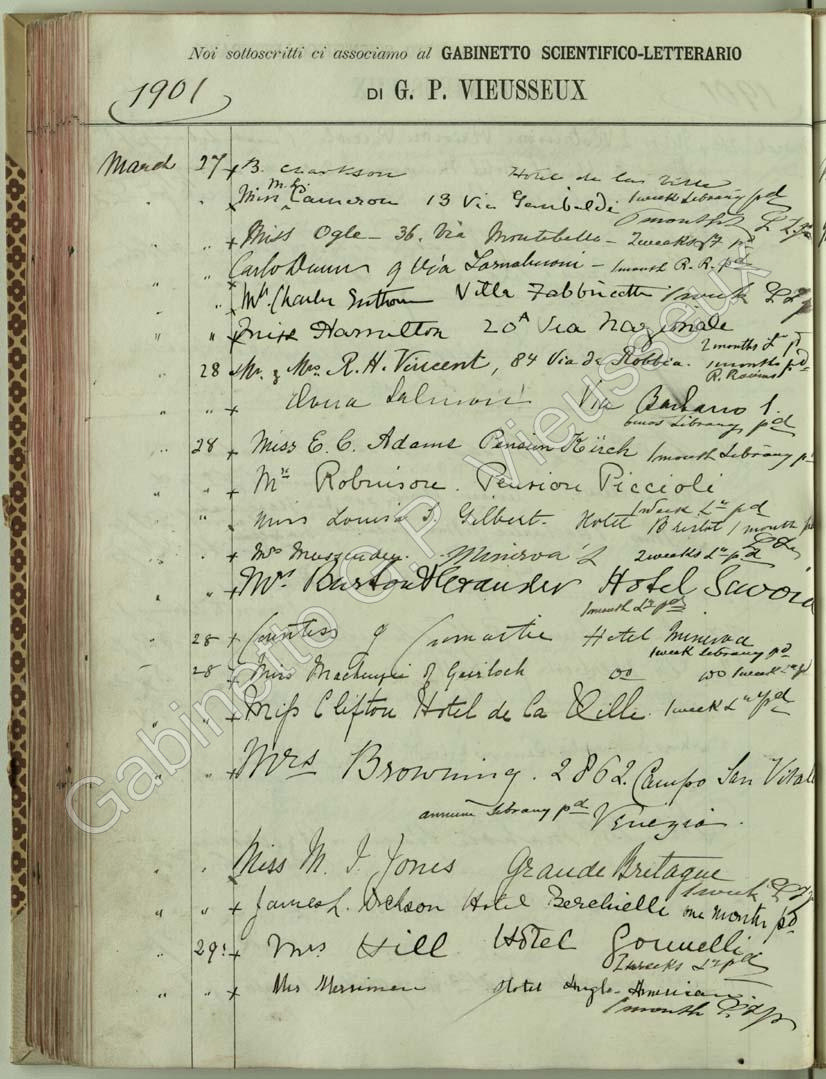 Noi sottoscritti ci associamo al GABINETTO SCIENTIFICO-LETTERARIO
1901
DI G. P. VIEUSSEUX
March 27 x B. Clarkson Hotel de la Ville
" " x Miss M. G. Cameron 13 Via Garibaldi 1 week Library pd
1 month
" " x Miss Ogle - 36. Via Montebello - 2 weeks pd
" " Carlo 9 Via Tornabuoni - 1 month R. R. pd
" " x Mrs Charles Villa Fabbricotti 1 week
" " x Miss Hamilton 20A Via Nazionale
2 months pd
28 x Mr. & Mrs. R. H. Vincent, 84 Via della Robbia. 1 month pd
R. Rooms
" " x Salmoni Via Barbano 1.
Library pd
" 28 x Miss E. C. Adams Pension Kirch 1 month Library pd
" " x Mrs Robinson. Pension Piccioli
1 week Ly pd
" " Miss Louisa Gilbert. Hotel Bristol 1 month
" " x Mrs Minerva 2 weeks Ly pd
" " x Mrs Burton Alexander Hotel Savoia
1 month Ly pd
" 28 x Countess of Cromartie Hotel Minerva
1 week Library pd
" 28 x Miss Mackenzie of Gairloch do do 1 week Ly pd
" " x Miss Clifton Hotel de la Ville. 1 week Ly pd
" " x Mrs Browning. 2862. Campo San Vitale
annum Library pd Venezia.
" " Miss M. I. Jones Grande Bretagne
1 week
" " x James L. Hotel Berchielli one month pd
" 29 x Mrs Hill Hotel Gonnelli
2 weeks Ly pd
" " x Mrs Merriman Hotel Anglo-American
1 month
Gabinetto G.P. Vieusseux